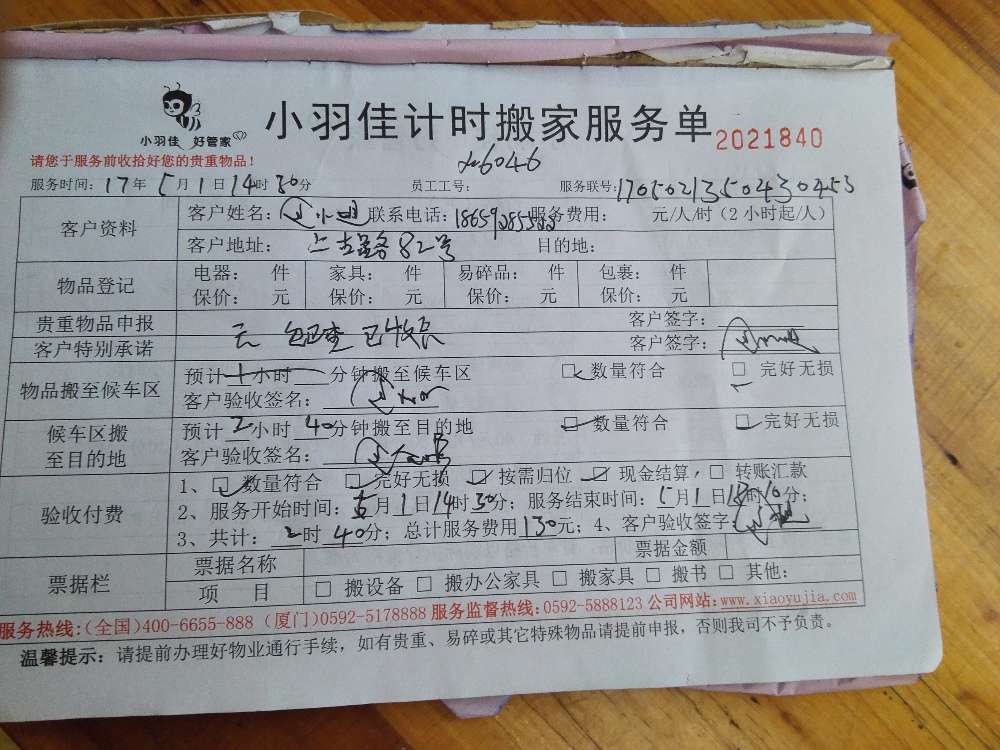 小羽佳 好管家
小羽佳计时搬家服务单
2021840
请您于服务前收拾好您的贵重物品!
6046
服务时间: 17年 5月 1日 14时 30分 员工工号: 服务联号: 170502135043 0453
客户资料
客户姓名: 小 联系电话: 服务费用: 元/人/时 (2小时起/人)
客户地址: 82号 目的地:
物品登记
电器: 件 家具: 件 易碎品: 件 包裹: 件
保价: 元 保价: 元 保价: 元 保价: 元
贵重物品申报 无 客户签字:
客户特别承诺 已收 客户签字:
物品搬至候车区
预计 1 小时 分钟搬至候车区 数量符合 完好无损
客户验收签名:
候车区搬至目的地
预计 2 小时 40 分钟搬至目的地 数量符合 完好无损
客户验收签名:
验收付费
1、 数量符合 完好无损 按需归位 现金结算, 转账汇款
2、服务开始时间: 5月 1日 14时 30分; 服务结束时间: 5月 1日 18时 10分;
3、共计: 2时 40分; 总计服务费用 130元; 4、客户验收签字:
票据栏
票据名称 票据金额
项 目 搬设备 搬办公家具 搬家具 搬书 其他:
服务热线:(全国)400-6655-888 (厦门)0592-5178888 服务监督热线:0592-5888123 公司网站:www.xiaoyujia.com
温馨提示: 请提前办理好物业通行手续, 如有贵重、易碎或其它特殊物品请提前申报, 否则我司不予负责。